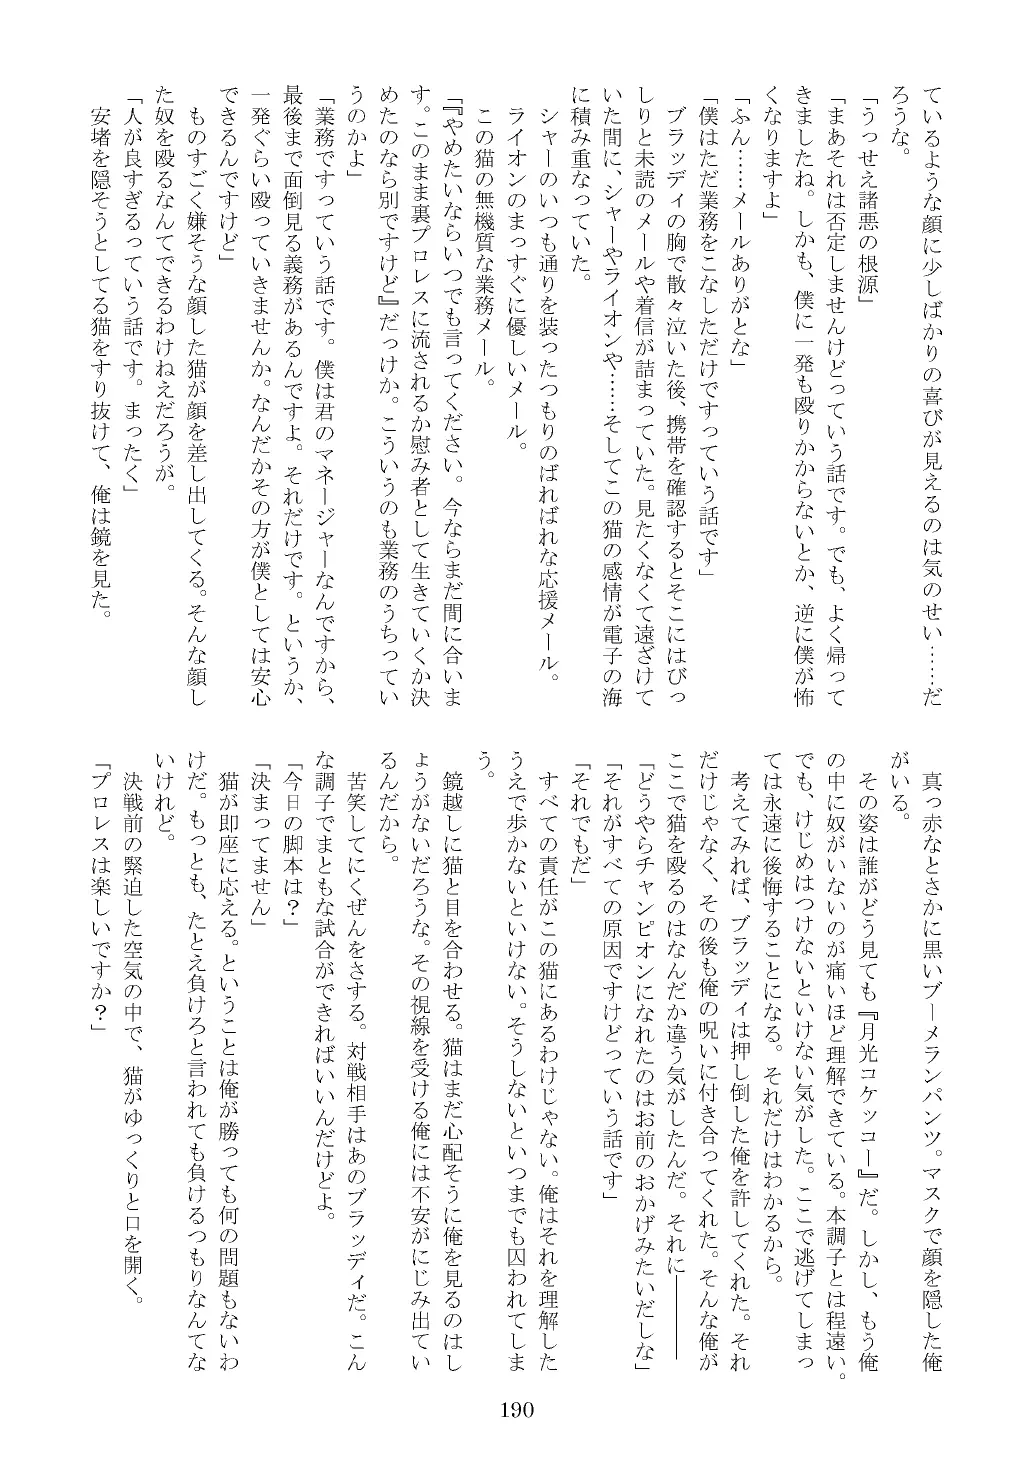 ているような顔に少しばかりの喜びが見えるのは気のせい……だ
ろうな。
「うっせえ諸悪の根源」
「まあそれは否定しませんけどっていう話です。でも、よく帰って
きましたね。しかも、僕に一発も殴りかからないとか、逆に僕が怖
くなりますよ」
「ふん……メールありがとな」
「僕はただ業務をこなしただけですっていう話です」
ブラッディの胸で散々泣いた後、携帯を確認するとそこにはびっ
しりと未読のメールや着信が詰まっていた。見たくなくて遠ざけて
いた間に、シャーやライオンや……そしてこの猫の感情が電子の海
に積み重なっていた。
シャーのいつも通りを装ったつもりのばればれな応援メール。
ライオンのまっすぐに優しいメール。
この猫の無機質な業務メール。
「『やめたいならいつでも言ってください。今ならまだ間に合いま
す。このまま裏プロレスに流されるか慰み者として生きていくか決
めたのなら別ですけど』だっけか。こういうのも業務のうちってい
うのかよ」
「業務ですっていう話です。僕は君のマネージャーなんですから、
最後まで面倒見る義務があるんですよ。それだけです。というか、
一発ぐらい殴っていきませんか。なんだかその方が僕としては安心
できるんですけど」
ものすごく嫌そうな顔した猫が顔を差し出してくる。そんな顔し
た奴を殴るなんてできるわけねえだろうが。
「人が良すぎるっていう話です。まったく」
安堵を隠そうとしてる猫をすり抜けて、俺は鏡を見た。
真っ赤なとさかに黒いブーメランパンツ。マスクで顔を隠した俺
がいる。
その姿は誰がどう見ても『月光コケッコー』だ。しかし、もう俺
の中に奴がいないのが痛いほど理解できている。本調子とは程遠い。
でも、けじめはつけないといけない気がした。ここで逃げてしまっ
ては永遠に後悔することになる。それだけはわかるから。
考えてみれば、ブラッディは押し倒した俺を許してくれた。それ
だけじゃなく、その後も俺の呪いに付き合ってくれた。そんな俺が
ここで猫を殴るのはなんだか違う気がしたんだ。それに――――
「どうやらチャンピオンになれたのはお前のおかげみたいだしな」
「それがすべての原因ですけどっていう話です」
「それでもだ」
すべての責任がこの猫にあるわけじゃない。俺はそれを理解した
うえで歩かないといけない。そうしないといつまでも囚われてしま
う。
鏡越しに猫と目を合わせる。猫はまだ心配そうに俺を見るのはし
ょうがないだろうな。その視線を受ける俺には不安がにじみ出てい
るんだから。
苦笑してにくぜんをさする。対戦相手はあのブラッディだ。こん
な調子でまともな試合ができればいいんだけどよ。
「今日の脚本は？」
「決まってません」
猫が即座に応える。ということは俺が勝っても何の問題もないわ
けだ。もっとも、たとえ負けろと言われても負けるつもりなんてな
いけれど。
決戦前の緊迫した空気の中で、猫がゆっくりと口を開く。
「プロレスは楽しいですか？」
190